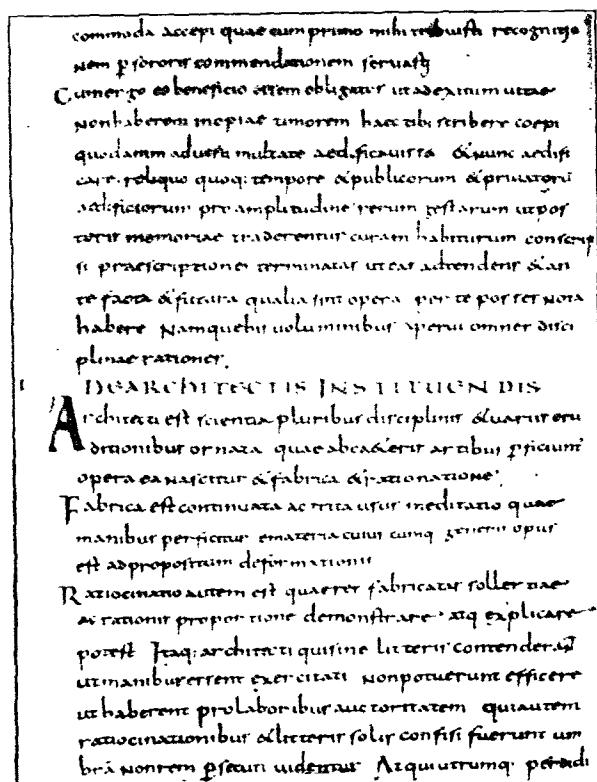 commoda accepi quae cum primo mihi tribuisti recognitio
nem p sororis commendationem servasti
Cum ergo eo beneficio essem obligatus ut ad exitum vitae
non haberem inopiae timorem haec tibi scribere coepi
quod animadverti multa te aedificavisse & nunc aedifi
care reliquo quoq: tempore & publicorum & privatorū
aedificiorum pro amplitudine rerum gestarum ut pos
teris memoriae traderentur curam habiturum conscrip
si praescriptiones terminatas ut eas adtendens & an
te facta & futura qualia sint opera per te posses nota
habere Namque his voluminibus aperui omnes disci
plinae rationes.
I DE ARCHITECTIS INSTITUENDIS
Architecti est scientia pluribus disciplinis & variis eru
ditionibus ornata quae ab ca&eris artibus pficiunt̄
opera ea nascitur & fabrica & rationatione.
Fabrica est continuata ac trita usus meditatio quae
manibus perficitur e materia cuius cumq generis opus
est ad propositum deformationis
Ratiocinatio autem est quae res fabricatas sollertiae
ac rationis proportione demonstrare atq explicare
potest Itaq: architecti qui sine litteris contenderant
ut manibus essent exercitati Non potuerunt efficere
ut haberent pro laboribus auctoritatem qui autem
ratiocinationibus & litteris solis confisi fuerunt um
brā non rem psecuti videntur At qui utrumq perdidi